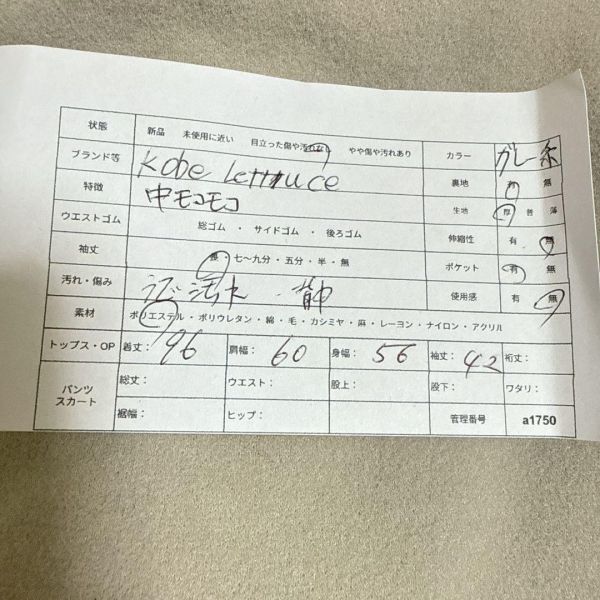 状態 新品 未使用に近い 目立った傷や汚れなし やや傷や汚れあり カラー
ブランド等 Kobe Lettuce 裏地 有 無
特徴 中モコモコ 生地 厚 普 薄
ウエストゴム 総ゴム ・ サイドゴム ・ 後ろゴム 伸縮性 有 無
袖丈 長・七〜九分・五分・半・無 ポケット 有 無
汚れ・傷み 汚れ 背中 使用感 有 無
素材 ポリエステル・ポリウレタン・綿・毛・カシミヤ・麻・レーヨン・ナイロン・アクリル
トップス・OP 着丈: 96 肩幅: 60 身幅: 56 袖丈: 42 裄丈:
パンツ スカート 総丈: ウエスト: 股上: 股下: ワタリ:
裾幅: ヒップ: 管理番号 a1750